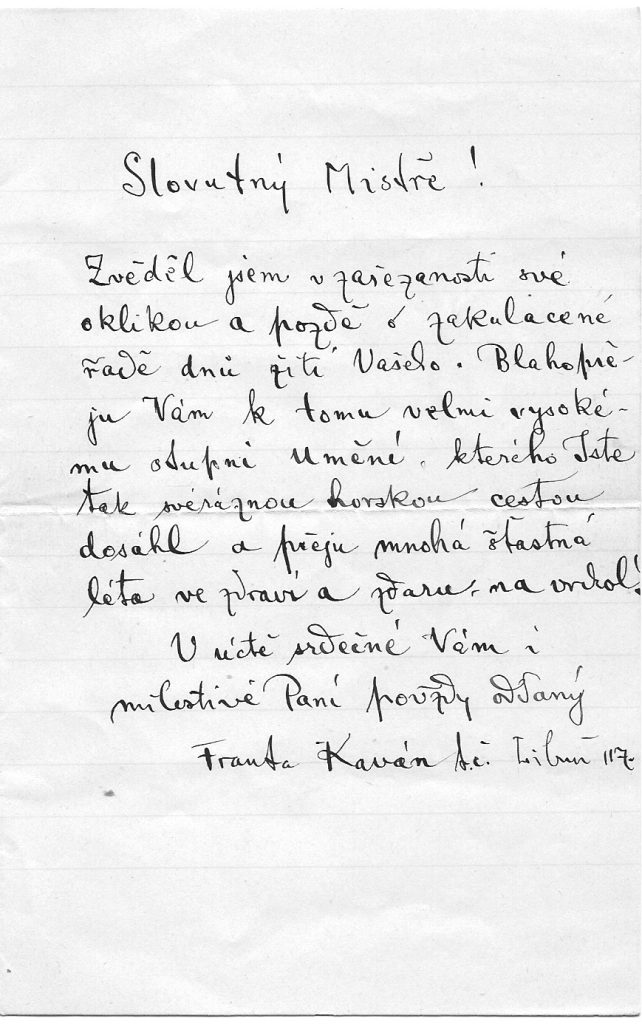 Slovutný Mistře!
Zvěděl jsem v zařezanosti své
oklikou a pozdě o zakulacené
řadě dnů žití Vašeho. Blahopře-
ju Vám k tomu velmi vysoké-
mu stupni Umění, kterého Jste
tak svéráznou horskou cestou
dosáhl a přeju mnohá šťastná
léta ve zdraví a zdaru, na vrchol!
V úctě srdečné Vám i
milostivé Paní povždy oddaný
Franta Kaván t.č. Libuň 117.